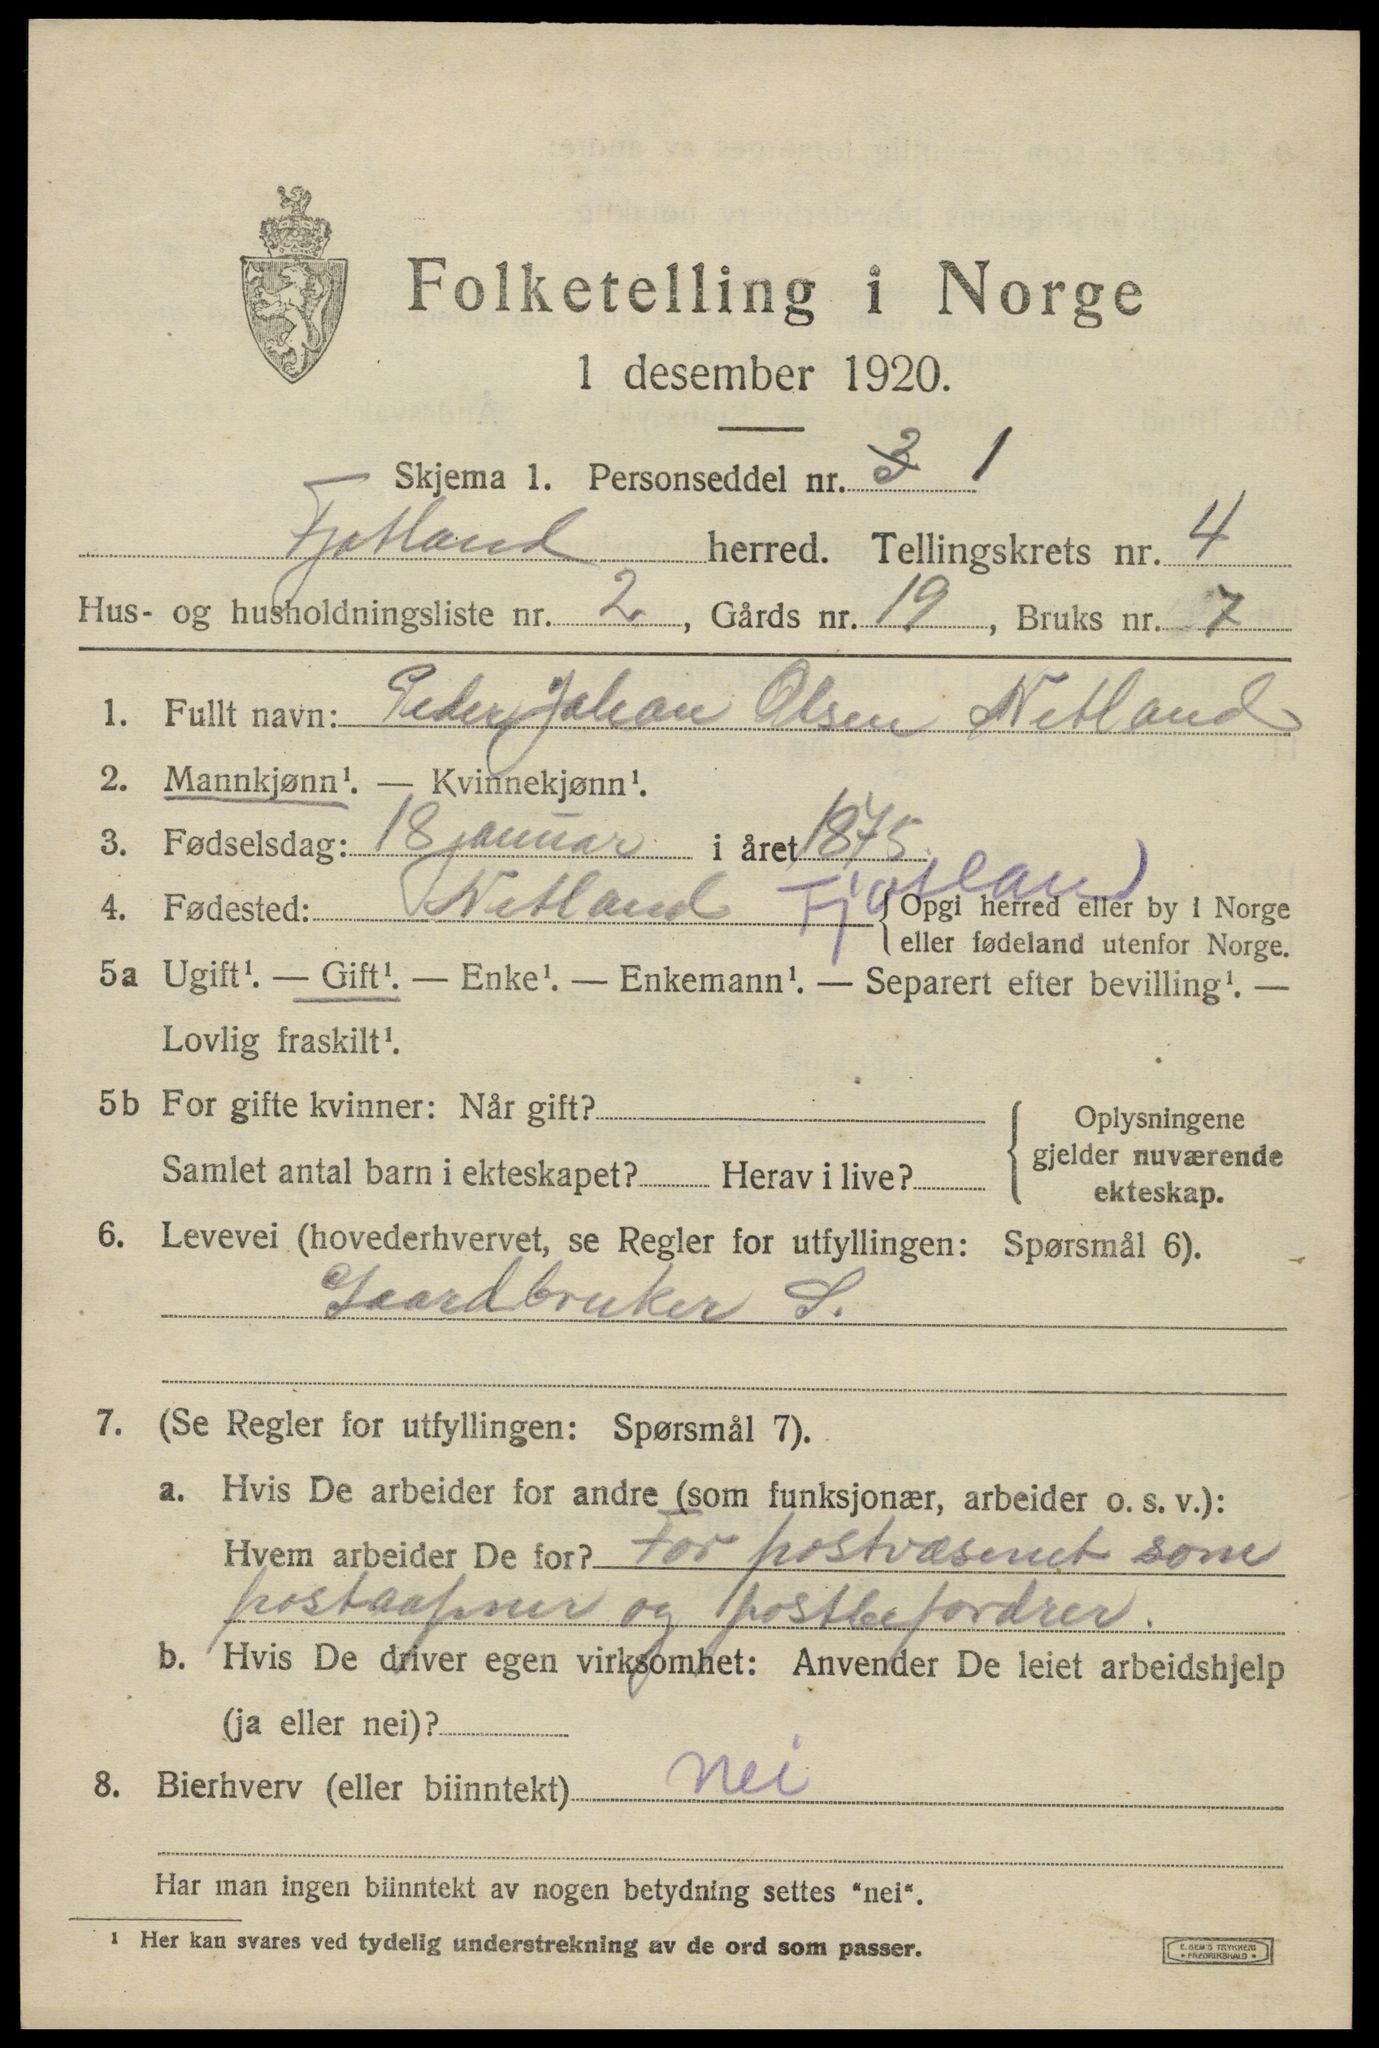 Folketelling i Norge
1 desember 1920.
Skjema 1. Personseddel nr. 3 1
Fjotland herred. Tellingskrets nr. 4
Hus- og husholdningsliste nr. 2, Gårds nr. 19, Bruks nr. 7
1. Fullt navn: Peder Johan Olsen Netland
2. Mannkjønn¹. — Kvinnekjønn¹.
3. Fødselsdag: 18 januar i året 1875.
4. Fødested: Netland Fjotland { Opgi herred eller by i Norge
eller fødeland utenfor Norge.
5a Ugift¹. — Gift¹. — Enke¹. — Enkemann¹. — Separert efter bevilling¹. —
Lovlig fraskilt¹.
5b For gifte kvinner: Når gift?
Samlet antal barn i ekteskapet? Herav i live?
{ Oplysningene
gjelder nuværende
ekteskap.
6. Levevei (hovederhvervet, se Regler for utfyllingen: Spørsmål 6).
Gaardbruker S.
7. (Se Regler for utfyllingen: Spørsmål 7).
a. Hvis De arbeider for andre (som funksjonær, arbeider o. s. v.):
Hvem arbeider De for? For postvæsenet som
postaapner og postbefordrer.
b. Hvis De driver egen virksomhet: Anvender De leiet arbeidshjelp
(ja eller nei)?
8. Bierhverv (eller biinntekt) nei
Har man ingen biinntekt av nogen betydning settes "nei".
¹ Her kan svares ved tydelig understrekning av de ord som passer.
E. SEM'S TRYKKERI
FREDRIKSHALD